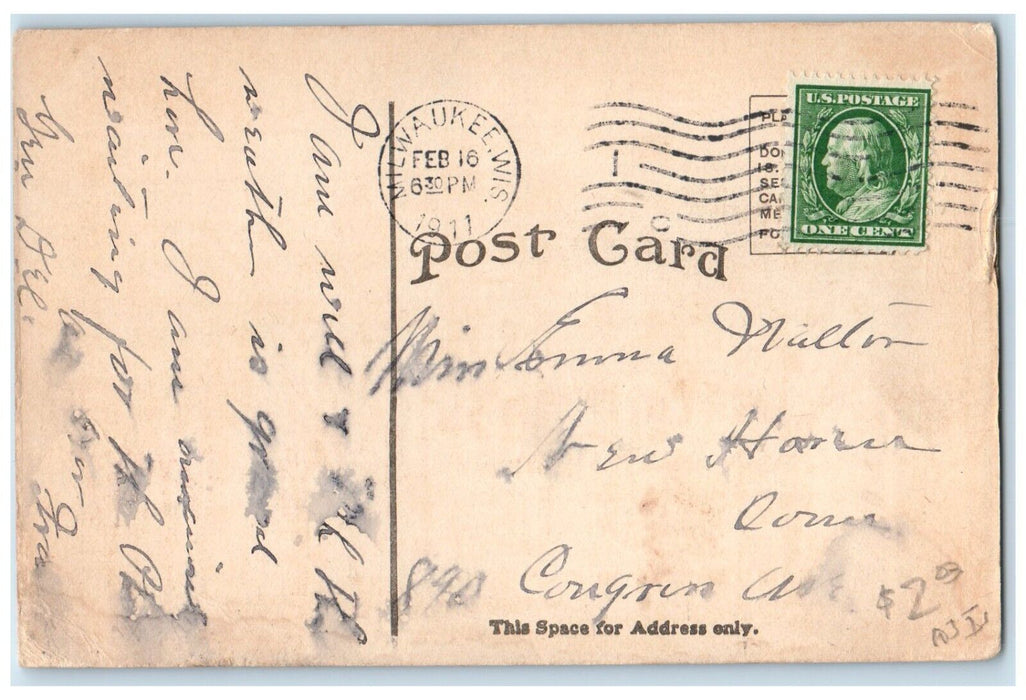 MILWAUKEE, WIS.
FEB 16
630 PM
1911
1
C
U.S. POSTAGE
ONE CENT
PLA
DO
IS.
SE
CA
ME
FO
Post Card
Miss Emma Walton
New Haven
Conn
890 Congress Ave.
This Space for Address only.
$2 00
I am well &
weath is good
here. I am
waiting for the